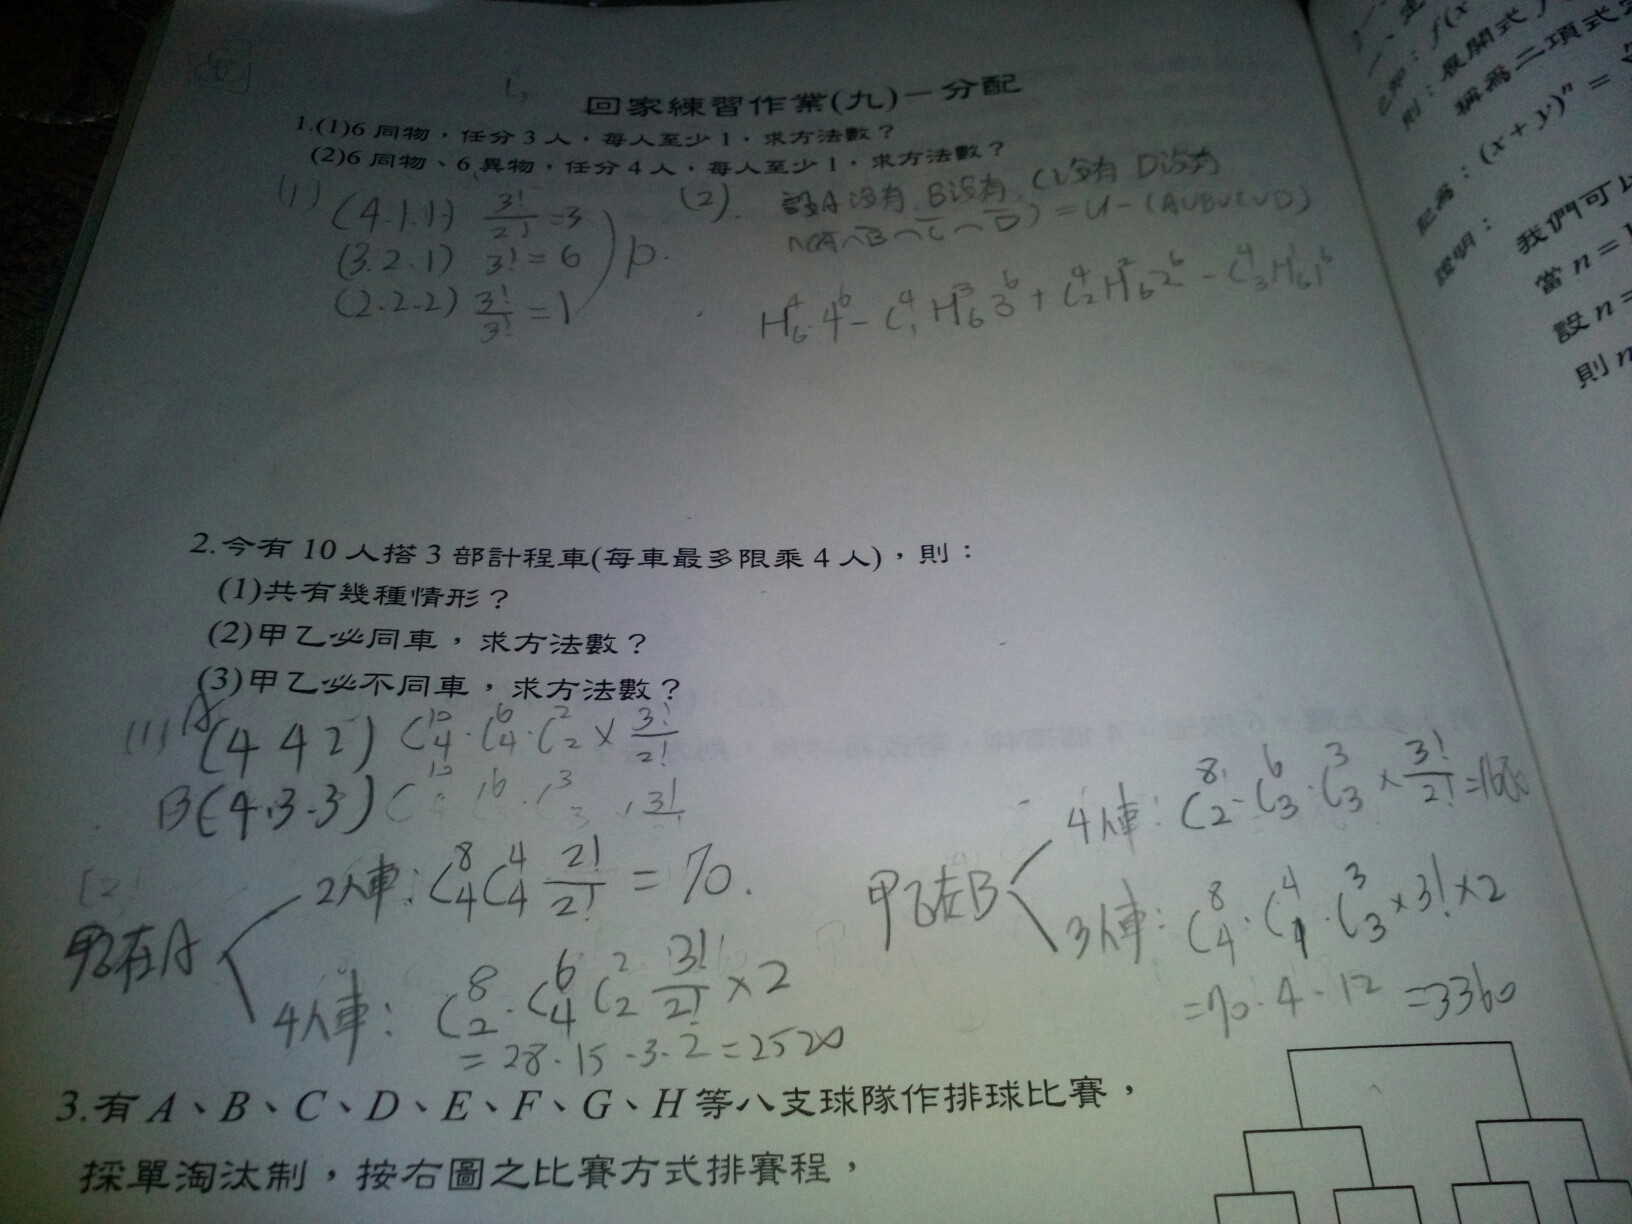 回家練習作業(九)－分配
1.(1)6同物，任分3人，每人至少1，求方法數？
(2)6同物、6異物，任分4人，每人至少1，求方法數？
(1) (4.1.1) 3!/2! = 3
(3.2.1) 3! = 6
(2.2.2) 3!/3! = 1
(2). 設A沒有 B沒有 C沒有 D沒有
n(A̅∩B̅∩C̅∩D̅) = U - (A∪B∪C∪D)
H⁴₆·4⁶ - C⁴₁H³₆3⁶ + C⁴₂H²₆2⁶ - C⁴₃H¹₆1⁶
2.今有10人搭3部計程車(每車最多限乘4人)，則：
(1)共有幾種情形？
(2)甲乙必同車，求方法數？
(3)甲乙必不同車，求方法數？
(1) A(4 4 2) C¹⁰₄·C⁶₄·C²₂ × 3!/2!
B(4.3.3)
(2)
甲乙在A
2人車: C⁸₄C⁴₄ 2!/2! = 70.
4人車: C⁸₂·C⁶₄C²₂ 3!/2! × 2
= 28·15·3·2 = 2520
甲乙在B
4人車: C⁸₂·C⁶₃·C³₃ × 3!/2! = 1680
3人車: C⁸₄·C⁴₁·C³₃ × 3! × 2
= 70·4·12 = 3360
3.有A、B、C、D、E、F、G、H等八支球隊作排球比賽，
採單淘汰制，按右圖之比賽方式排賽程，
：f(x
則：展開式
稱為二項式
記為：(x + y)ⁿ =
證明：我們可以
當 n = 1
設 n =
則 n